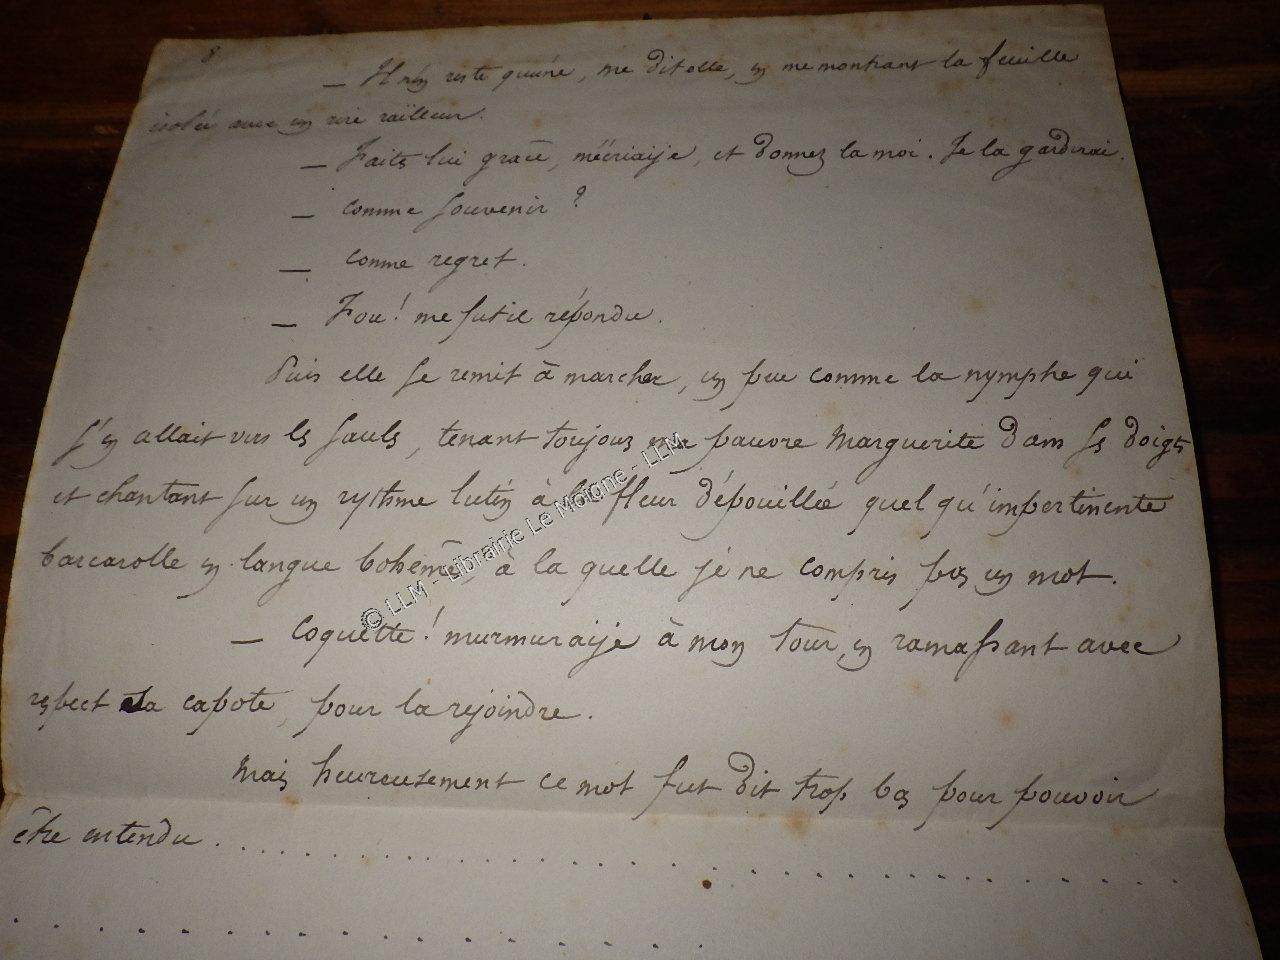 8
_ Il n'en reste qu'une, me dit elle, en me montrant la feuille
isolée avec un rire railleur.
_ Faites lui grace, m'écriaije, et donnez la moi. Je la garderai.
_ Comme souvenir ?
_ Comme regret.
_ Fou ! me fut il répondu.
Puis elle se remit à marcher, un peu comme la nymphe qui
s'en allait vers les sauls, tenant toujours pauvre Marguerite dans ses doigts
et chantant sur un rythme lutin à la fleur dépouillée quel qu'impertinente
barcarolle en langue bohême à la quelle je ne compris pas un mot.
_ Coquette ! murmuraije à mon tour, en ramassant avec
respect sa capote, pour la rejoindre.
Mais heureusement ce mot fut dit trop bas pour pouvoir
être entendu . . . . . . . . . . . . . . . . . . . . . . . . . . . . . .
. . . . . . . . . . . . . . . . .
© LLM - Librairie Le Moigne - LLM